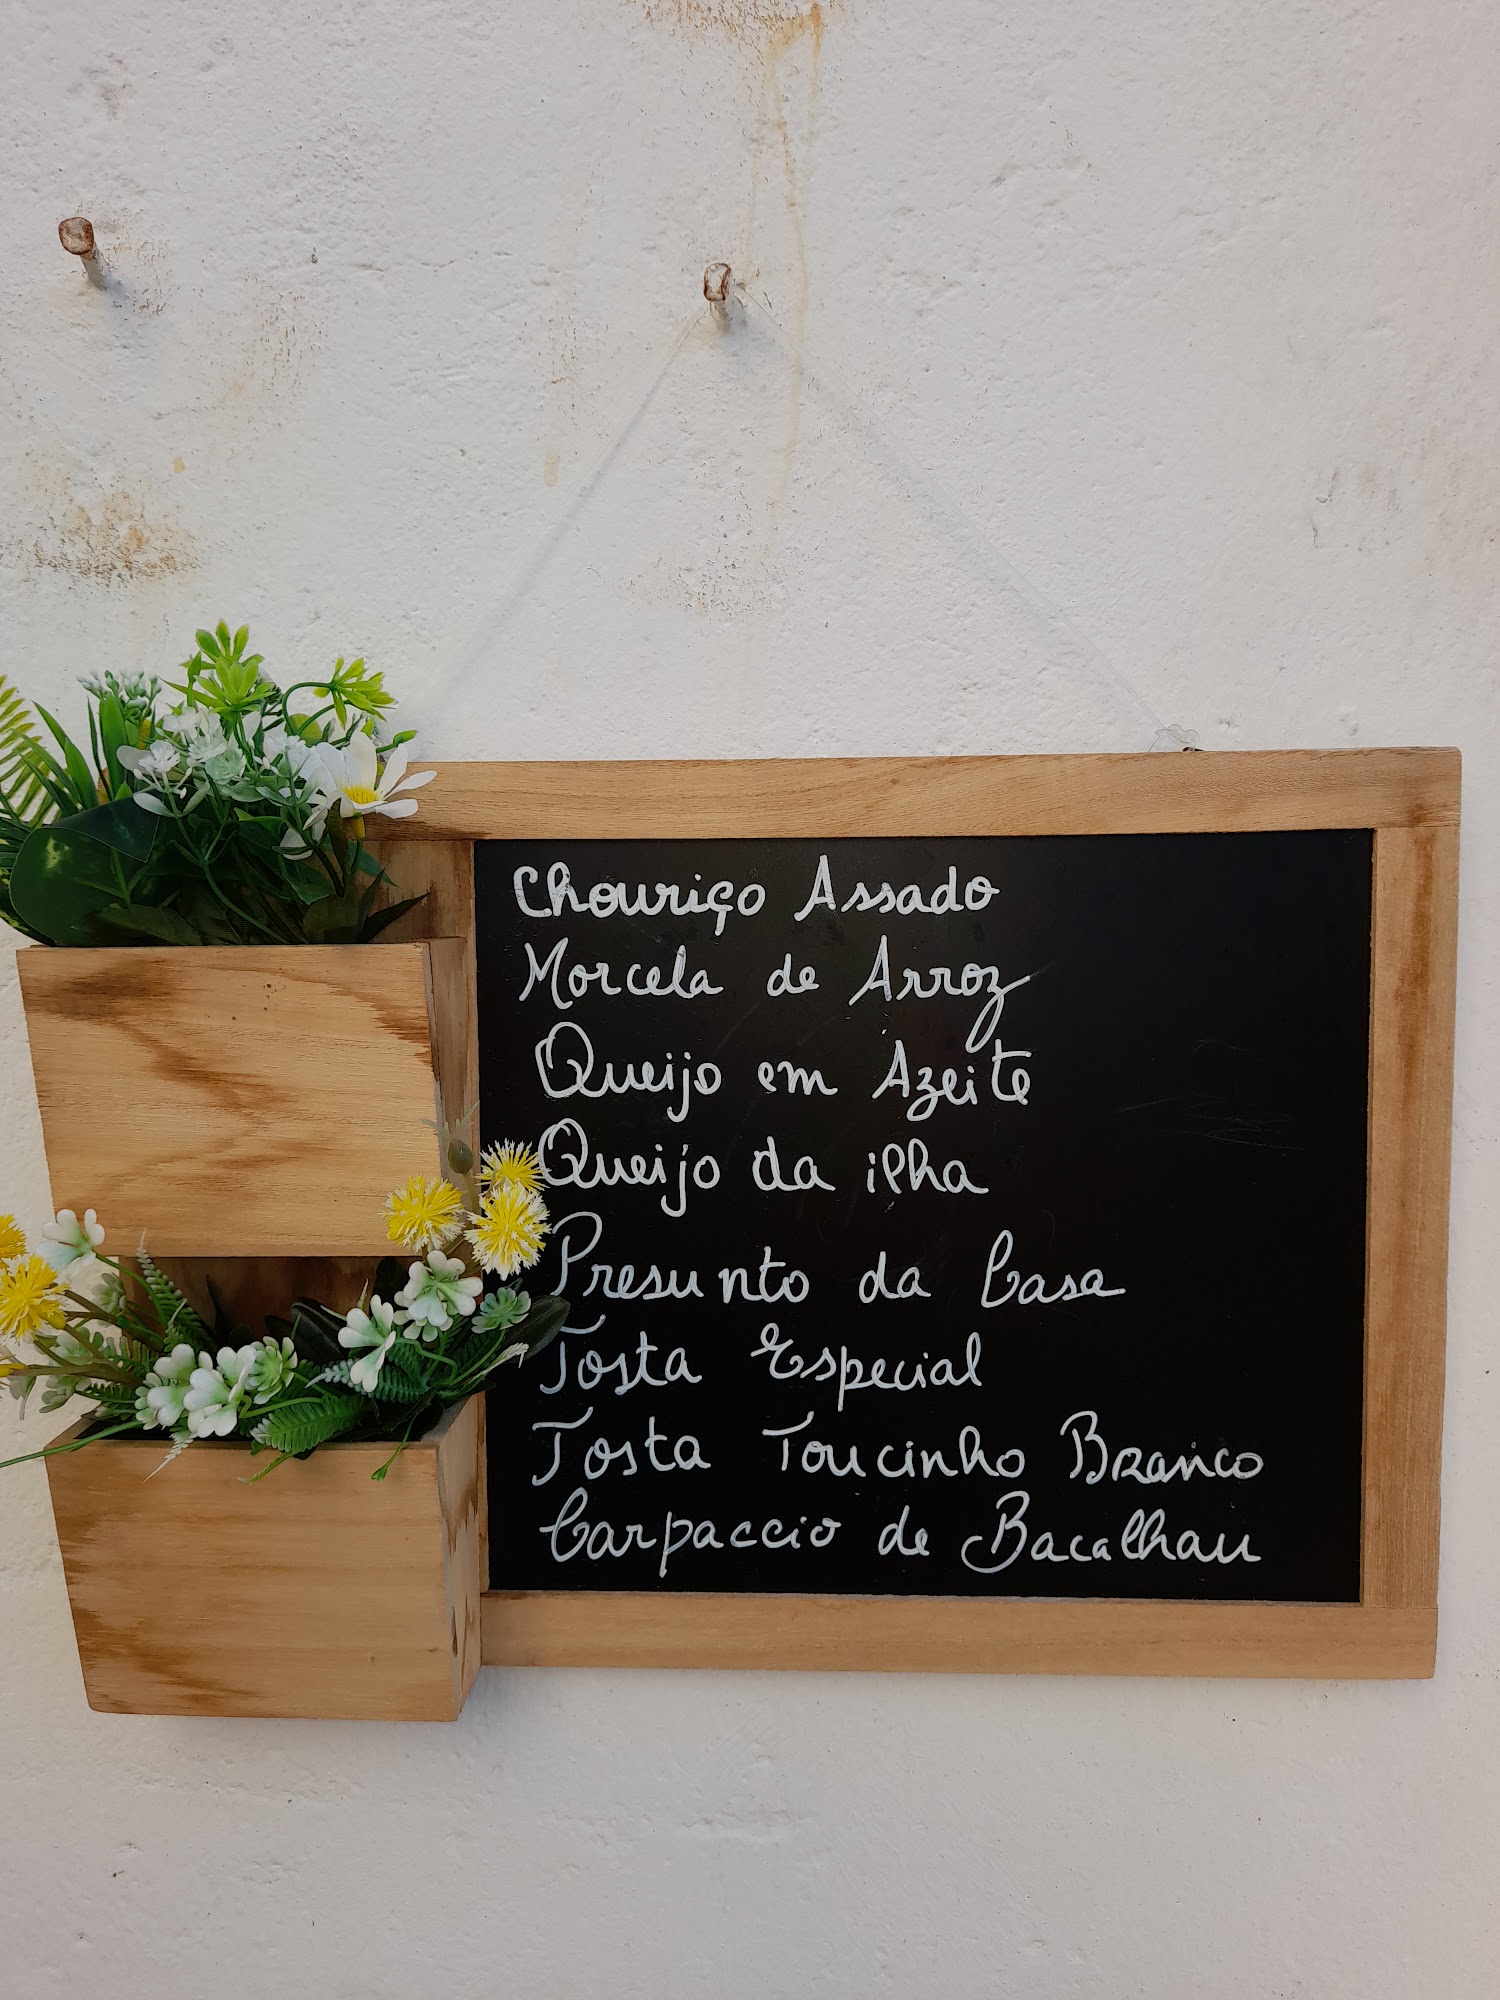 Chouriço Assado
Morcela de Arroz
Queijo em Azeite
Queijo da ilha
Presunto da Casa
Tosta Especial
Tosta Toucinho Branco
Carpaccio de Bacalhau